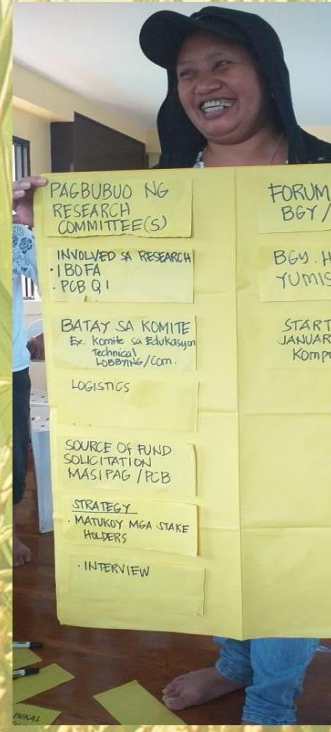 PAGBUBUO NG
RESEARCH
COMMITTEE(S)
INVOLVED SA RESEARCH
· IBOFA
· PCB Q1
BATAY SA KOMITE
Ex. Komite sa Edukasyon
Technical
LOBBYING/Com.
LOGISTICS
SOURCE OF FUND
SOLICITATION
MASIPAG/PCB
STRATEGY
· MATUKOY MGA STAKE
HOLDERS
· INTERVIEW
FORUM
BGY/
BGY. H
YUMIS
START
JANUAR
Komp